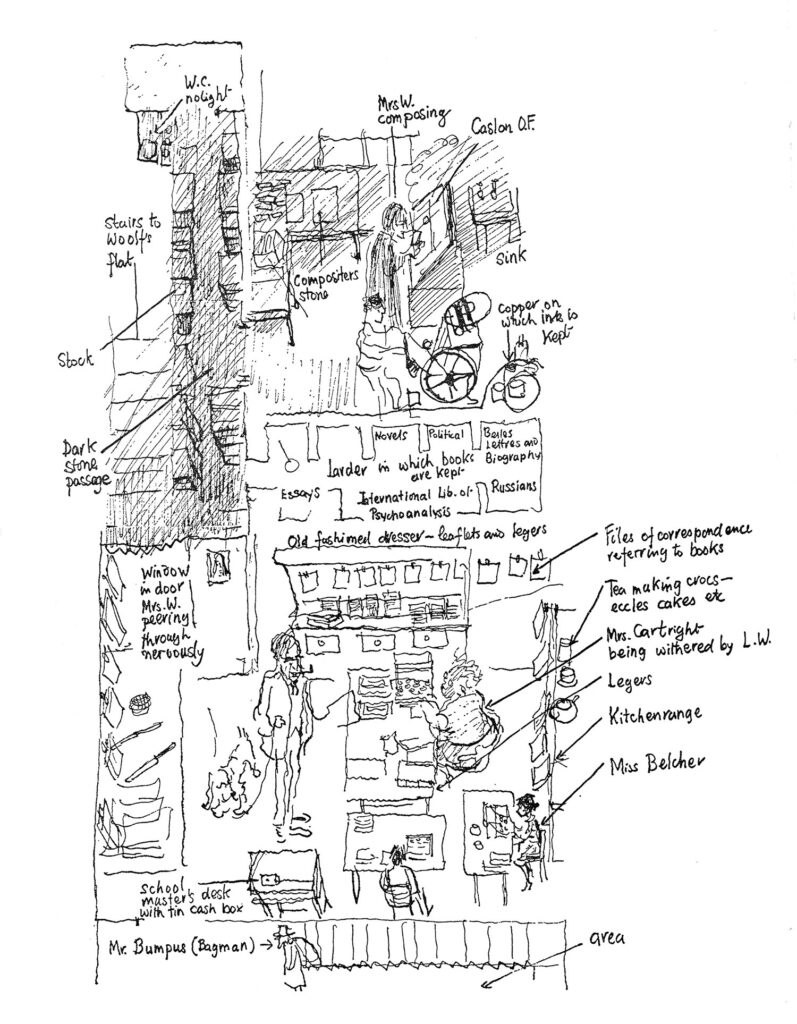 W.C.
no light
Mrs W.
composing
Caslon O.F.
Stairs to
Woolf's
flat
Compositers
stone
Sink
copper on
which ink is
kept
Stock
Dark
stone
passage
Novels
Political
Belles
Lettres and
Biography
Larder in which books
are kept
Essays
International Lib. of
Psychoanalysis
Russians
Old fashioned dresser - leaflets and legers
Files of correspondence
referring to books
Window
in door
Mrs. W.
peering
through
nervously
Tea making crocs -
eccles cakes etc
Mrs. Cartright
being withered by L.W.
Legers
Kitchenrange
Miss Belcher
School
master's desk
with tin cash box
Mr. Bumpus (Bagman)
area